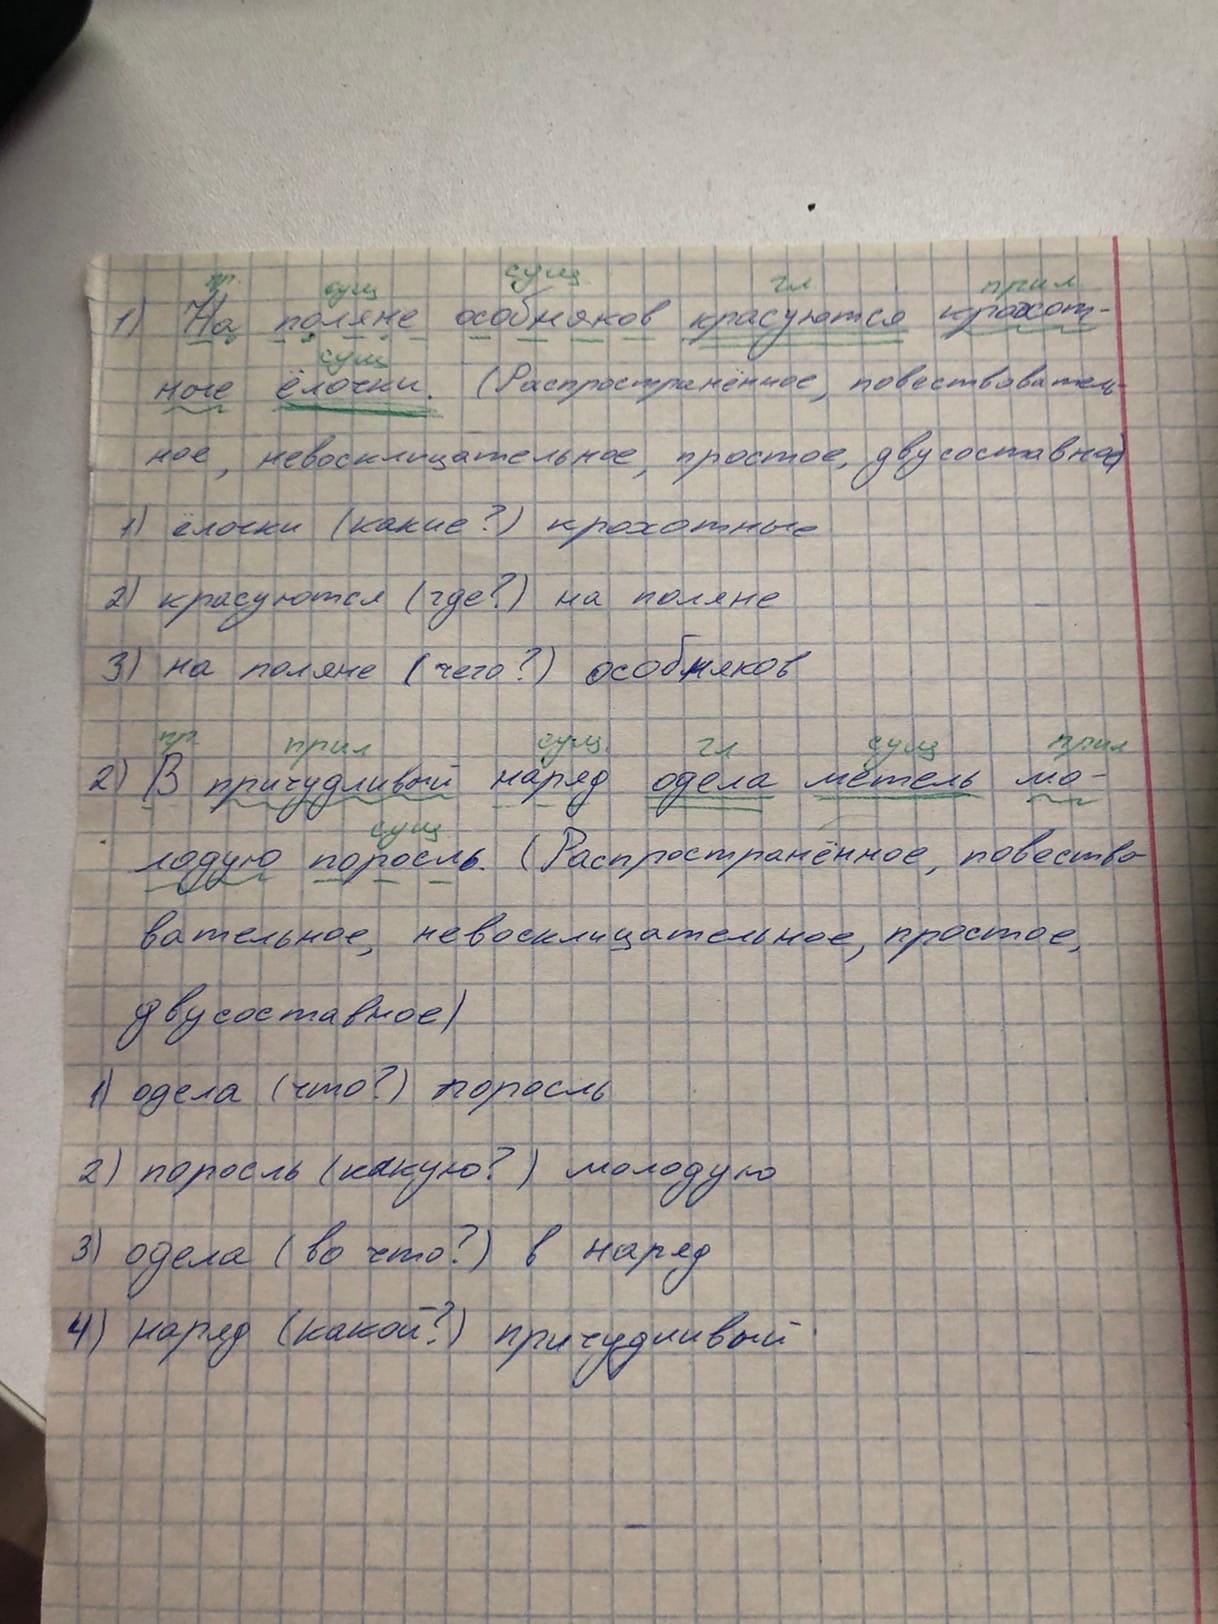 пр. сущ сущ гл прил
1) На поляне особняков красуются крохот-
сущ
ные ёлочки. (Распространённое, повествователь-
ное, невосклицательное, простое, двусоставное)
1) ёлочки (какие?) крохотные
2) красуются (где?) на поляне
3) на поляне (чего?) особняков
пр прил сущ. гл сущ прил
2) В причудливый наряд одела метель мо-
сущ
лодую поросль. (Распространённое, повество-
вательное, невосклицательное, простое,
двусоставное)
1) одела (что?) поросль
2) поросль (какую?) молодую
3) одела (во что?) в наряд
4) наряд (какой?) причудливый